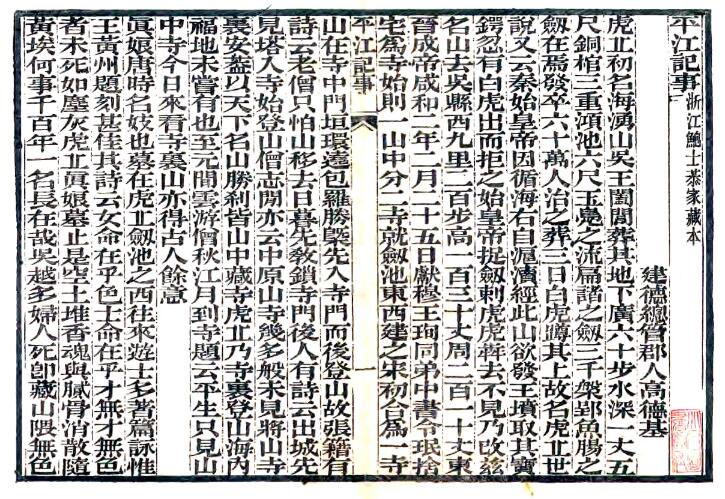 平江記事 浙江鮑士恭家藏本
建德總管郡人高德基
虎丘初名海湧山吳王闔閭葬其地下廣六十步水深一丈五
尺銅棺三重澒池六尺玉鳧之流扁諸之劔三千槃郢魚腸之
劔在焉發卒六十萬人治之葬三日白虎蹲其上故名虎丘世
說又云秦始皇帝因循海右自滬瀆經此山欲發王墳取其寶
鍔忽有白虎出而拒之始皇帝捉劔刺虎虎犇去不見乃改玆
名山去吳縣西九里二百步高一百三十丈周二百一十丈東
晉成帝咸和二年二月二十五日獻穆王珣同弟中書令珉捨
宅爲寺始則一山中分二寺就劔池東西建之宋初合爲一寺
平江記事 一
山在寺中門垣環遶包羅勝槩先入寺門而後登山故張籍有
詩云老僧只怕山移去日暮先敎鎖寺門後人有詩云出城先
見塔入寺始登山僧志閑亦云中原山寺幾多般未見將山寺
裏安蓋以天下名山勝刹皆山中藏寺虎丘乃寺裏登山海內
福地未嘗有也至元間雲游僧秋江月到寺題云平生只見山
中寺今日來看寺裏山亦得古人餘意
眞娘唐時名妓也墓在虎丘劔池之西往來遊士多著篇詠惟
王黃州題刻甚佳其詩云女命在乎色士命在乎才無才無色
者未死如塵灰虎丘眞娘墓止是空土堆香魂與膩骨消散隨
黃埃何事千百年一名長在哉吳越多婦人死卽藏山隈無色